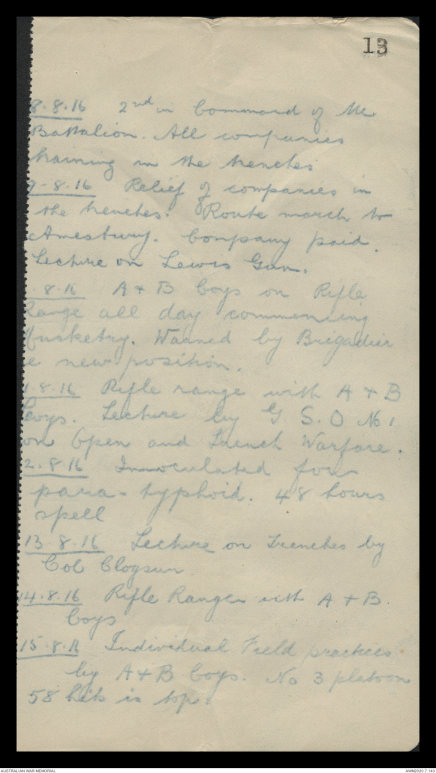 13
8.8.16 2nd in Command of the
Battalion. All companies
training in the trenches
9.8.16 Relief of companies in
the trenches. Route march to
Amesbury. Company paid.
Lecture on Lewis Gun.
.8.16 A + B Coys on Rifle
Range all day commencing
Musketry. Warned by Brigadier
new position.
1.8.16 Rifle range with A + B
Coys. Lecture by G S. O No 1
on Open and Trench Warfare.
2.8.16 Innoculated four
para-typhoid. 48 hours
spell
13.8.16 Lecture on Trenches by
Col
14.8.16 Rifle Ranges with A + B.
Coys
15.8.16 Individual Field practices
by A+B Coys. No 3 platoon
58 hits is top.
AUSTRALIAN WAR MEMORIAL